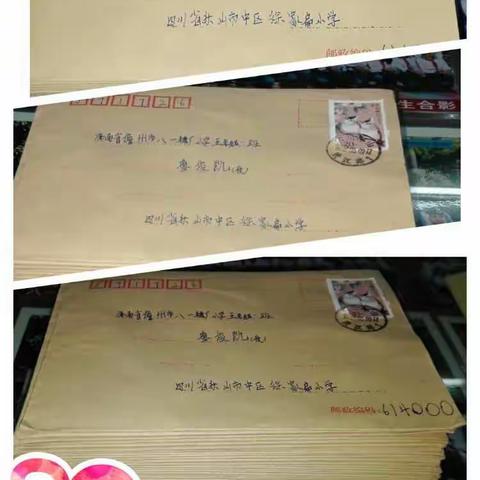 四川省乐山市中区徐家扁小学
邮政编码
571726
生合影
海南省儋州市八一糖厂小学五年级一班
俊凯(收)
四川省乐山市中区徐家扁小学
571726
海南省儋州市八一糖厂小学五年级一班
俊凯(收)
四川省乐山市中区徐家扁小学
邮政编码 614000